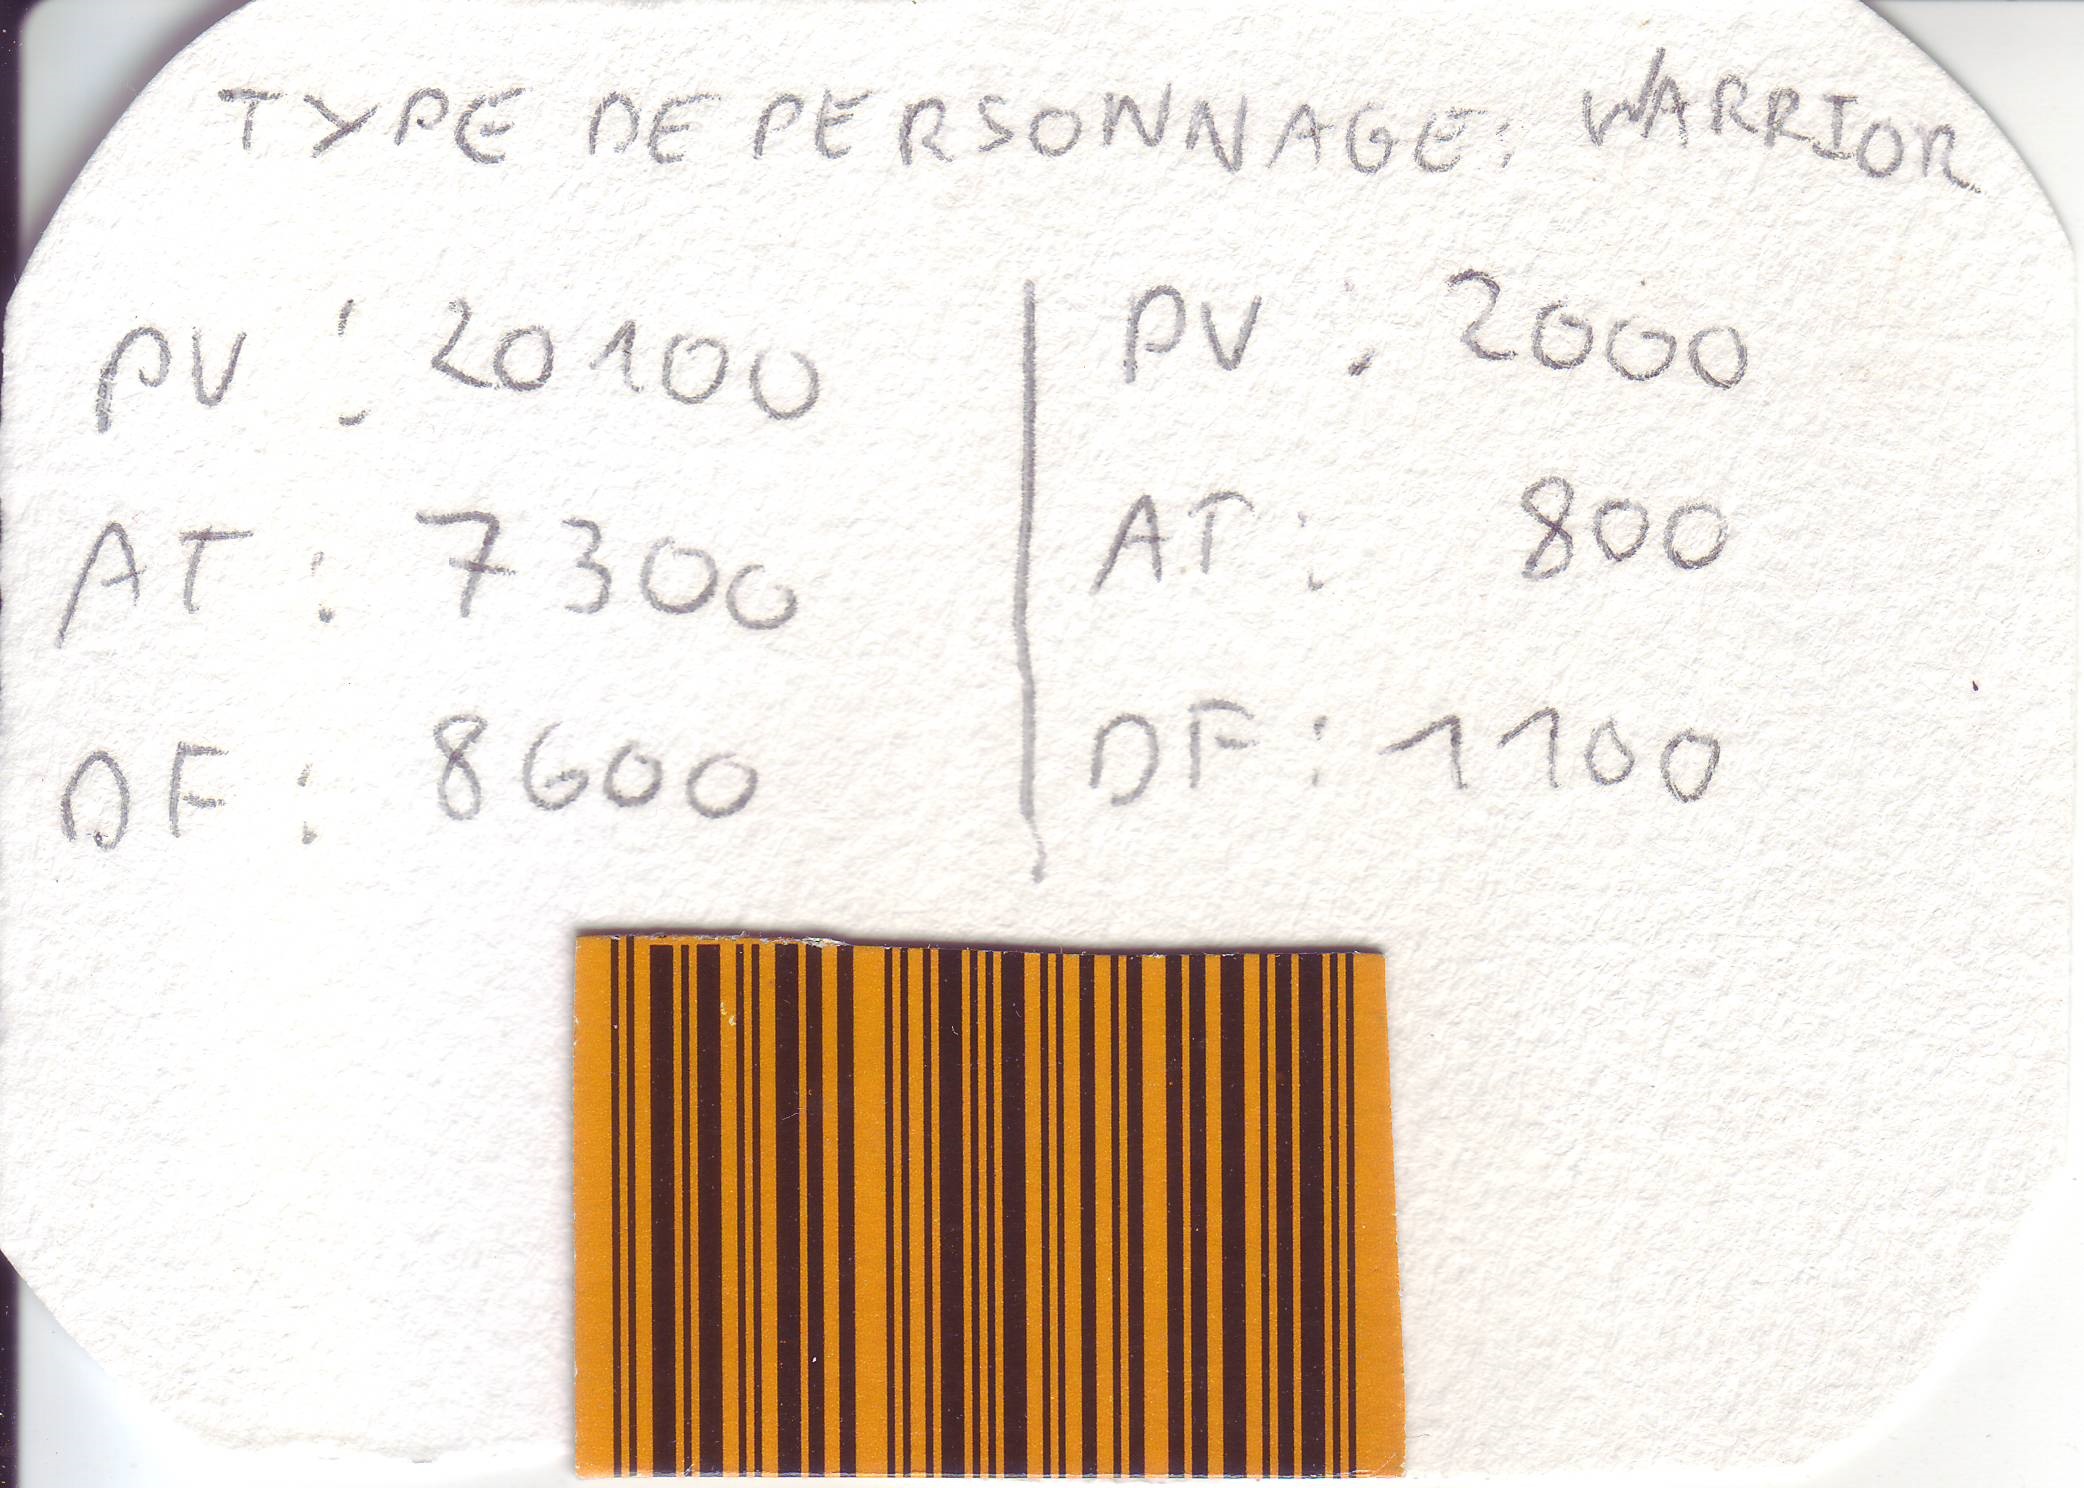 TYPE DE PERSONNAGE: WARRIOR
PV : 20100
AT : 7300
DF : 8600
PV : 2000
AT : 800
DF : 1100